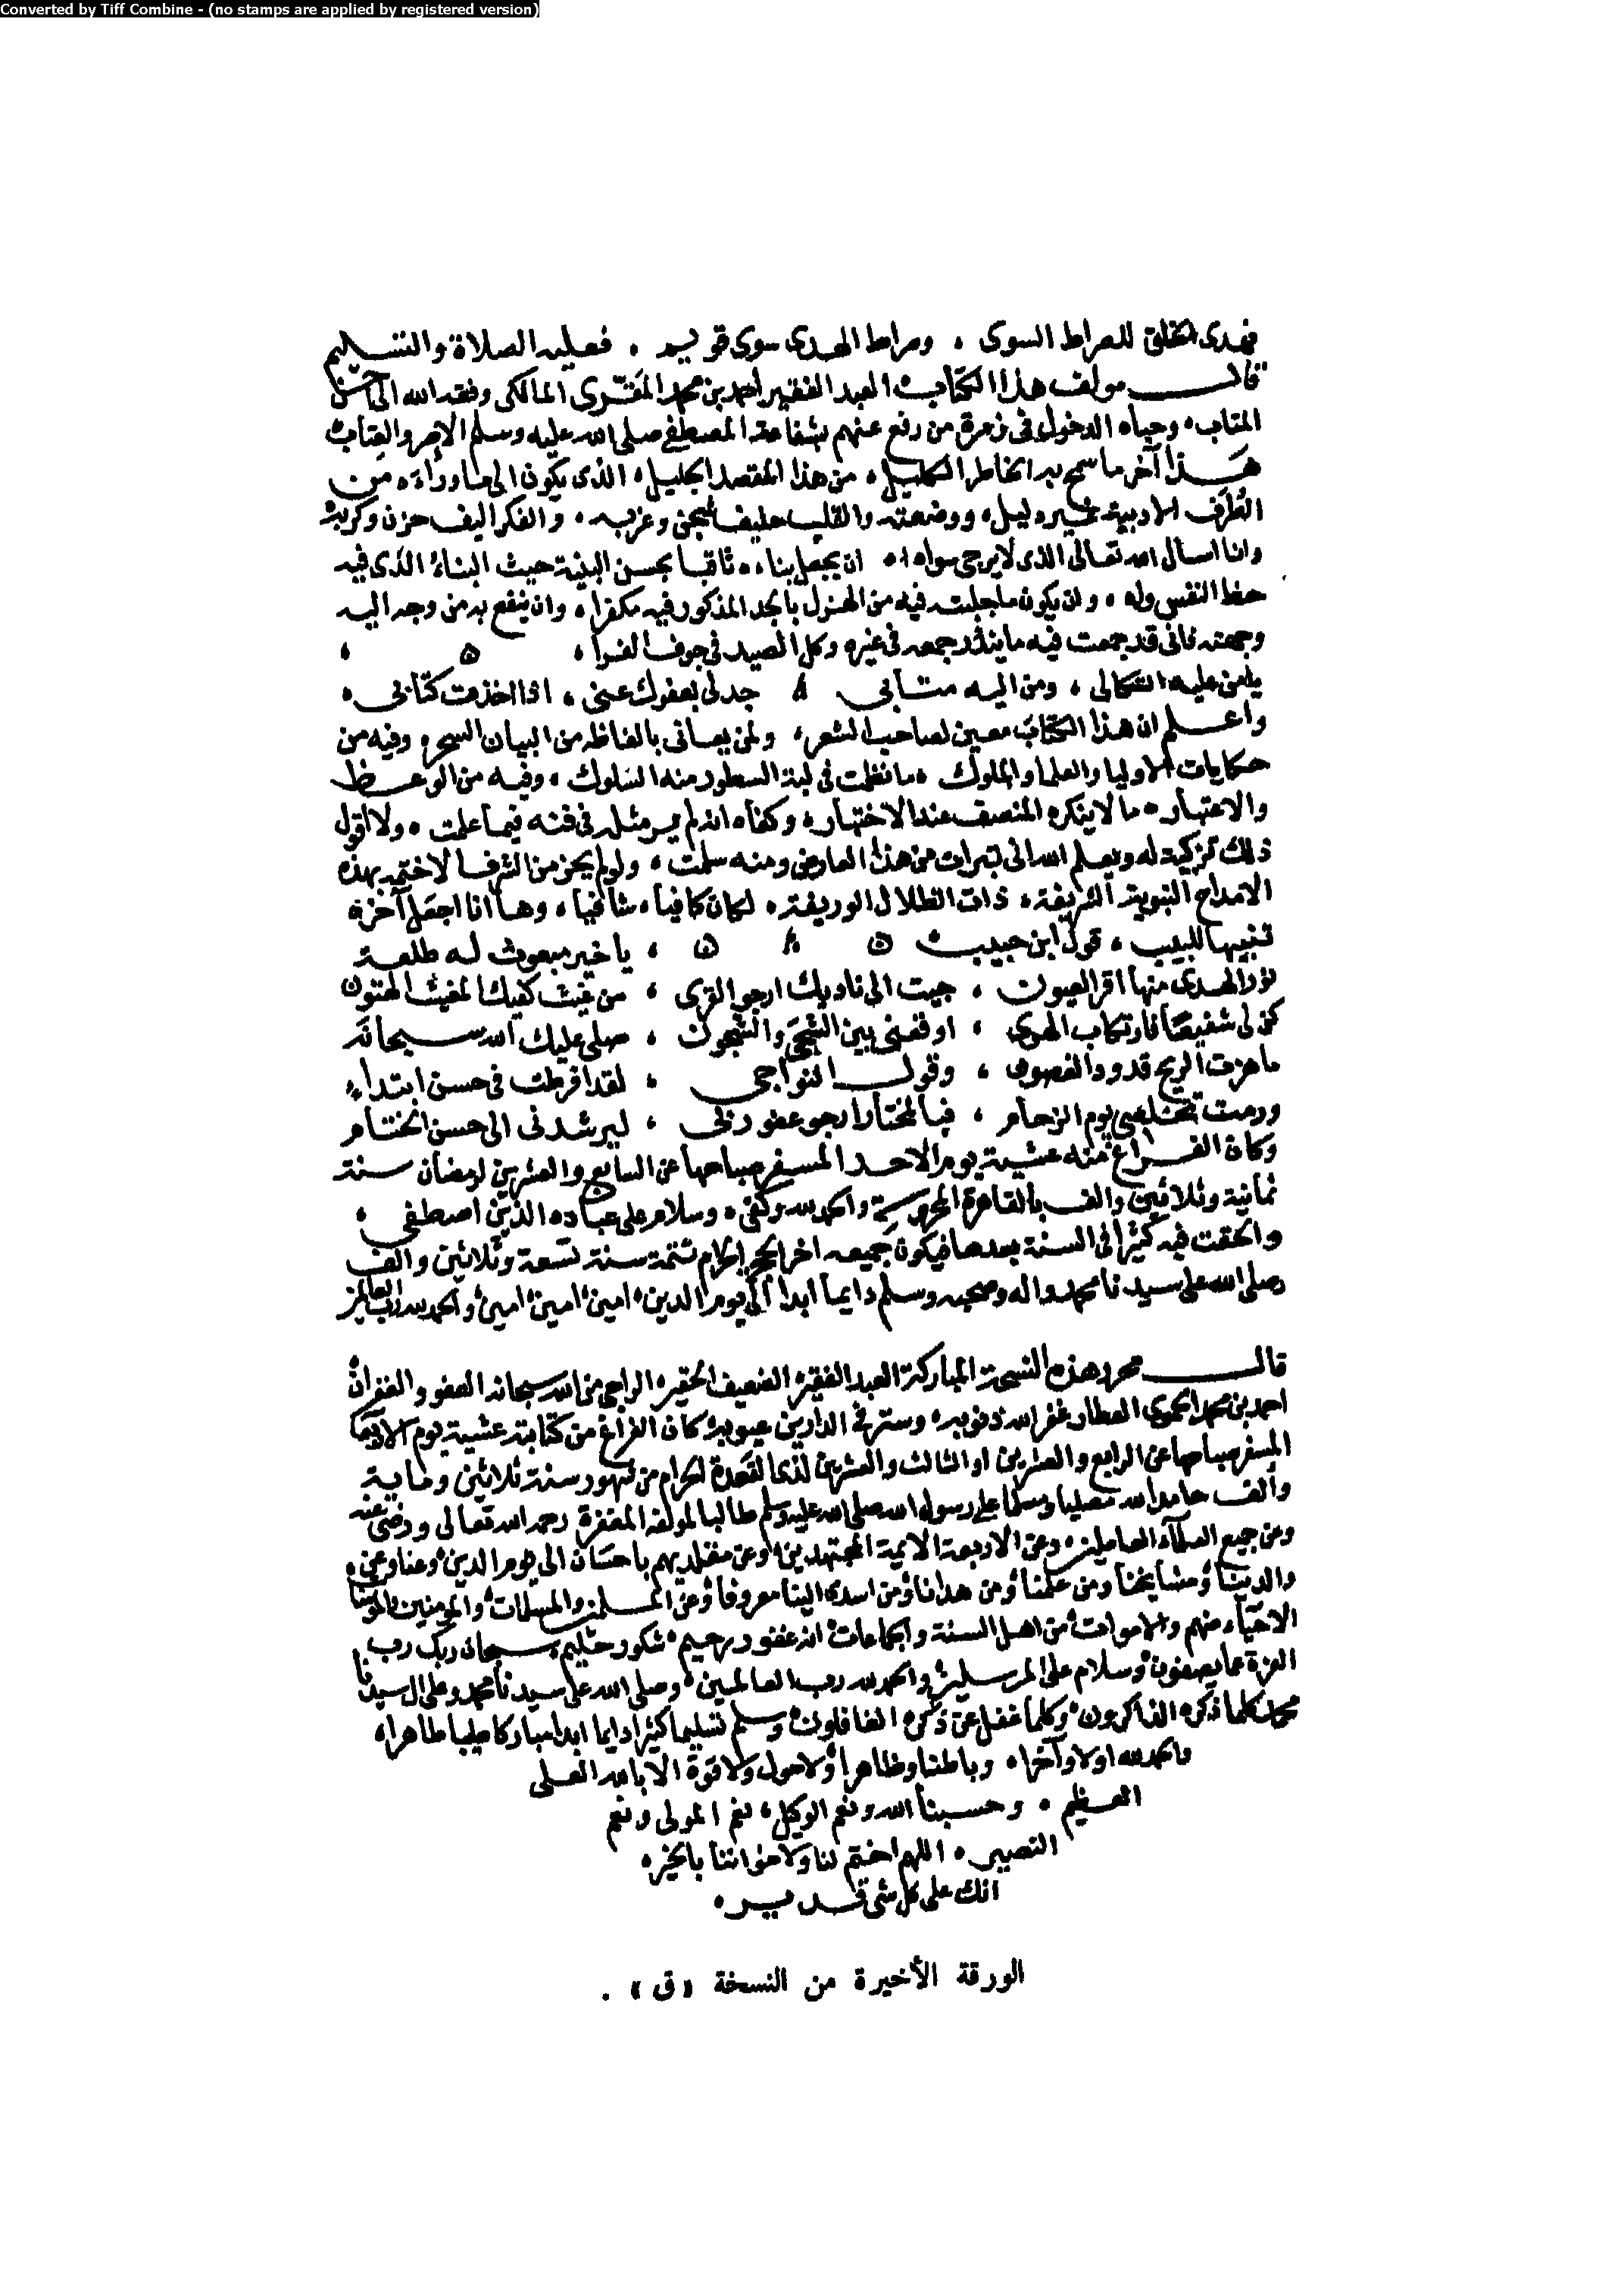 Converted by Tiff Combine - (no stamps are applied by registered version)
فهدى الخلق للصراط السوى ، وصراط الهدى سوى قويم . فعليه الصلاة والتسليم
قال مولف هذا الكتاب العبد الفقير احمد بن محمد المقرى المالكى وفقه الله الى حسن
المتاب ، وحباه الدخول فى زمرة من رفع عنهم بشفاعة المصطفى صلى الله عليه وسلم الاصر والعتاب
هذا آخر ما سمح به الخاطر الكليل ، من هذا المقصد الجليل ، الذى يكون الى ما وراءه من
الطرف الادبية خير دليل ، ووضعته والقلب حليف شجن وغربه ، والفكر اليف حزن وكربه
وانا اسال الله تعالى الذى لا يرجى سواه ، ان يجعل بناءه ثاقبا بحسن النية حيث البناء الذى فيه
حظ النفس واه ، وان يكون ما جلبته فيه من الهزل بالجد المذكور فيه مكفرا ، وان ينفع به من وجه اليه
وجهته فانى قد جمعت فيه ما يندر جمعه فى غيره وكل الصيد فى جوف الفرا ،
يا من عليه اتكالى ، ومن اليه متابى جد لى بعفوك عنى ، اذا اخذت كتابى ،
واعلم ان هذا الكتاب معين لصاحب الشعر ، ولمن يعانى بالفاظه من البيان السحر ، وفيه من
حكايات الاوليا والعلما والملوك ، ما نظمت فى لبة السطور منه السلوك ، وفيه من الوعظ
والاعتبار ، ما لا ينكره المنصف عند الاختبار ، وكفاه انه لم ير مثله فى فنه فيما علمت ، ولا اقول
ذلك تزكية له ويعلم الله انى تبرات من هذا العارض ومنه سلمت ، ولو لم يحز من الشرف الا ختمه بهذه
الامداح النبوية الشريفة ، ذات الظلال الوريفة ، لكان كافيا ، شافيا ، وها انا اجعل آخره
تنبيها للبيب ، قول ابن حبيب ، يا خير مبعوث له طلعة
نور الهدى منها اقر العيون ، جيت الى ناديك ارجو القرى ، من غيث كفيك المغيث الهتون
كن لى شفيعا فارتكاب الهوى ، اوقفنى بين الشجى والشجون ، صلى عليك الله سبحانه
ما هزت الريح قدود الغصون ، وقول النواجى ، لقد افرطت فى حسن ابتداء
ورمت تخلصى يوم الزحام ، فبالمختار ارجو عفو ربى ، ليرشدنى الى حسن الختام
وكان الفراغ منه عشية يوم الاحد المسفر صباحها عن السابع والعشرين لرمضان سنة
ثمانية وثلاثين والف بالقاهرة المحروسة والحمد لله وكفى ، وسلام على عباده الذين اصطفى ،
والحقت فيه كثيرا فى السنة بعدها فيكون جميعه اخر الحجة الحرام تتمة سنة تسعة وثلاثين والف
وصلى الله على سيدنا محمد واله وصحبه وسلم دايما ابدا الى يوم الدين امين امين امين والحمد لله رب العالمين
قال محرر هذه النسخة المباركة العبد الفقير الضعيف الحقير الراجى من الله سبحانه العفو والغفران
احمد بن محمد الحموى العطار غفر الله ذنوبه وستر فى الدارين عيوبه كان الفراغ من كتابته عشية يوم
المسفر صباحها عن الرابع والعشرين او الثالث والعشرين لذى القعدة الحرام من شهور سنة ثلاثين وماية
والف حامدا لله مصليا ومسلما على رسول الله صلى الله عليه وسلم طالبا لمولفه المغفرة رحمه الله تعالى ورضى عنه
وعن جميع العلماء العاملين وعن الاربعة الايمة المجتهدين وعن مقلديهم باحسان الى يوم الدين وعنا وعن
والدينا ومشايخنا ومن علمنا ومن هدانا ومن اسدى الينا معروفا وعن المسلمين والمسلمات والمومنين والمومنات
الاحياء منهم والاموات من اهل السنة والجماعات انه غفور رحيم شكور حليم سبحان ربك رب
العزة عما يصفون وسلام على المرسلين والحمد لله رب العالمين وصلى الله على سيدنا محمد وعلى ال سيدنا
محمد كلما ذكره الذاكرون وكلما غفل عن ذكره الغافلون وسلم تسليما كثيرا دايما ابدا مباركا طيبا طاهرا
والحمد لله اولا وآخرا ، وباطنا وظاهرا ولا حول ولا قوة الا بالله العلى
العظيم ، وحسبنا الله ونعم الوكيل نعم المولى ونعم
النصير ، اللهم اختم لنا ولاخواننا بالخير
انك على كل شى قدير
الورقة الأخيرة من النسخة « ق » .